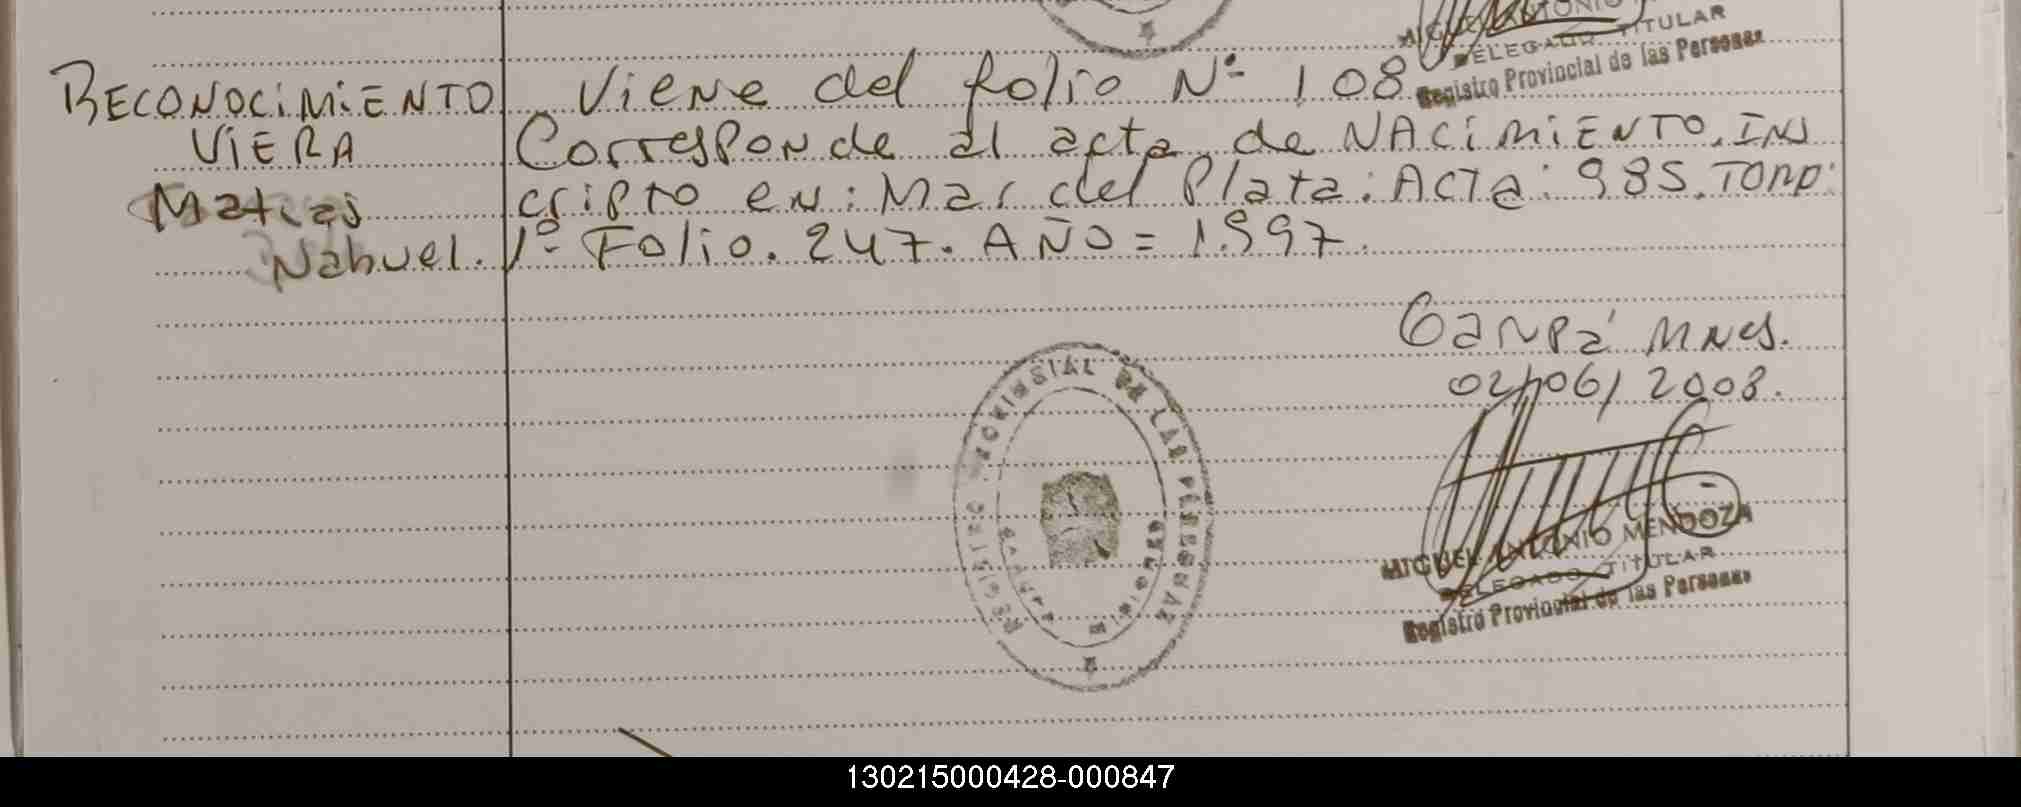 MIGUEL ANTONIO
DELEGADO TITULAR
Registro Provincial de las Personas
RECONOCIMIENTO Viene del folio Nº 108
VIERA Corresponde al acta de NACIMIENTO. INS
Matias cripto en: Mar del Plata: ACTA: 985. TOMO:
Nahuel. 1º Folio. 247. AÑO = 1.997.
Garupá MNES.
02/06/2008.
REGISTRO PROVINSIAL DE LAS PERSONAS
GARUPA
MISIONES
MIGUEL ANTONIO MENDOZA
DELEGADO TITULAR
Registro Provincial de las Personas
130215000428-000847